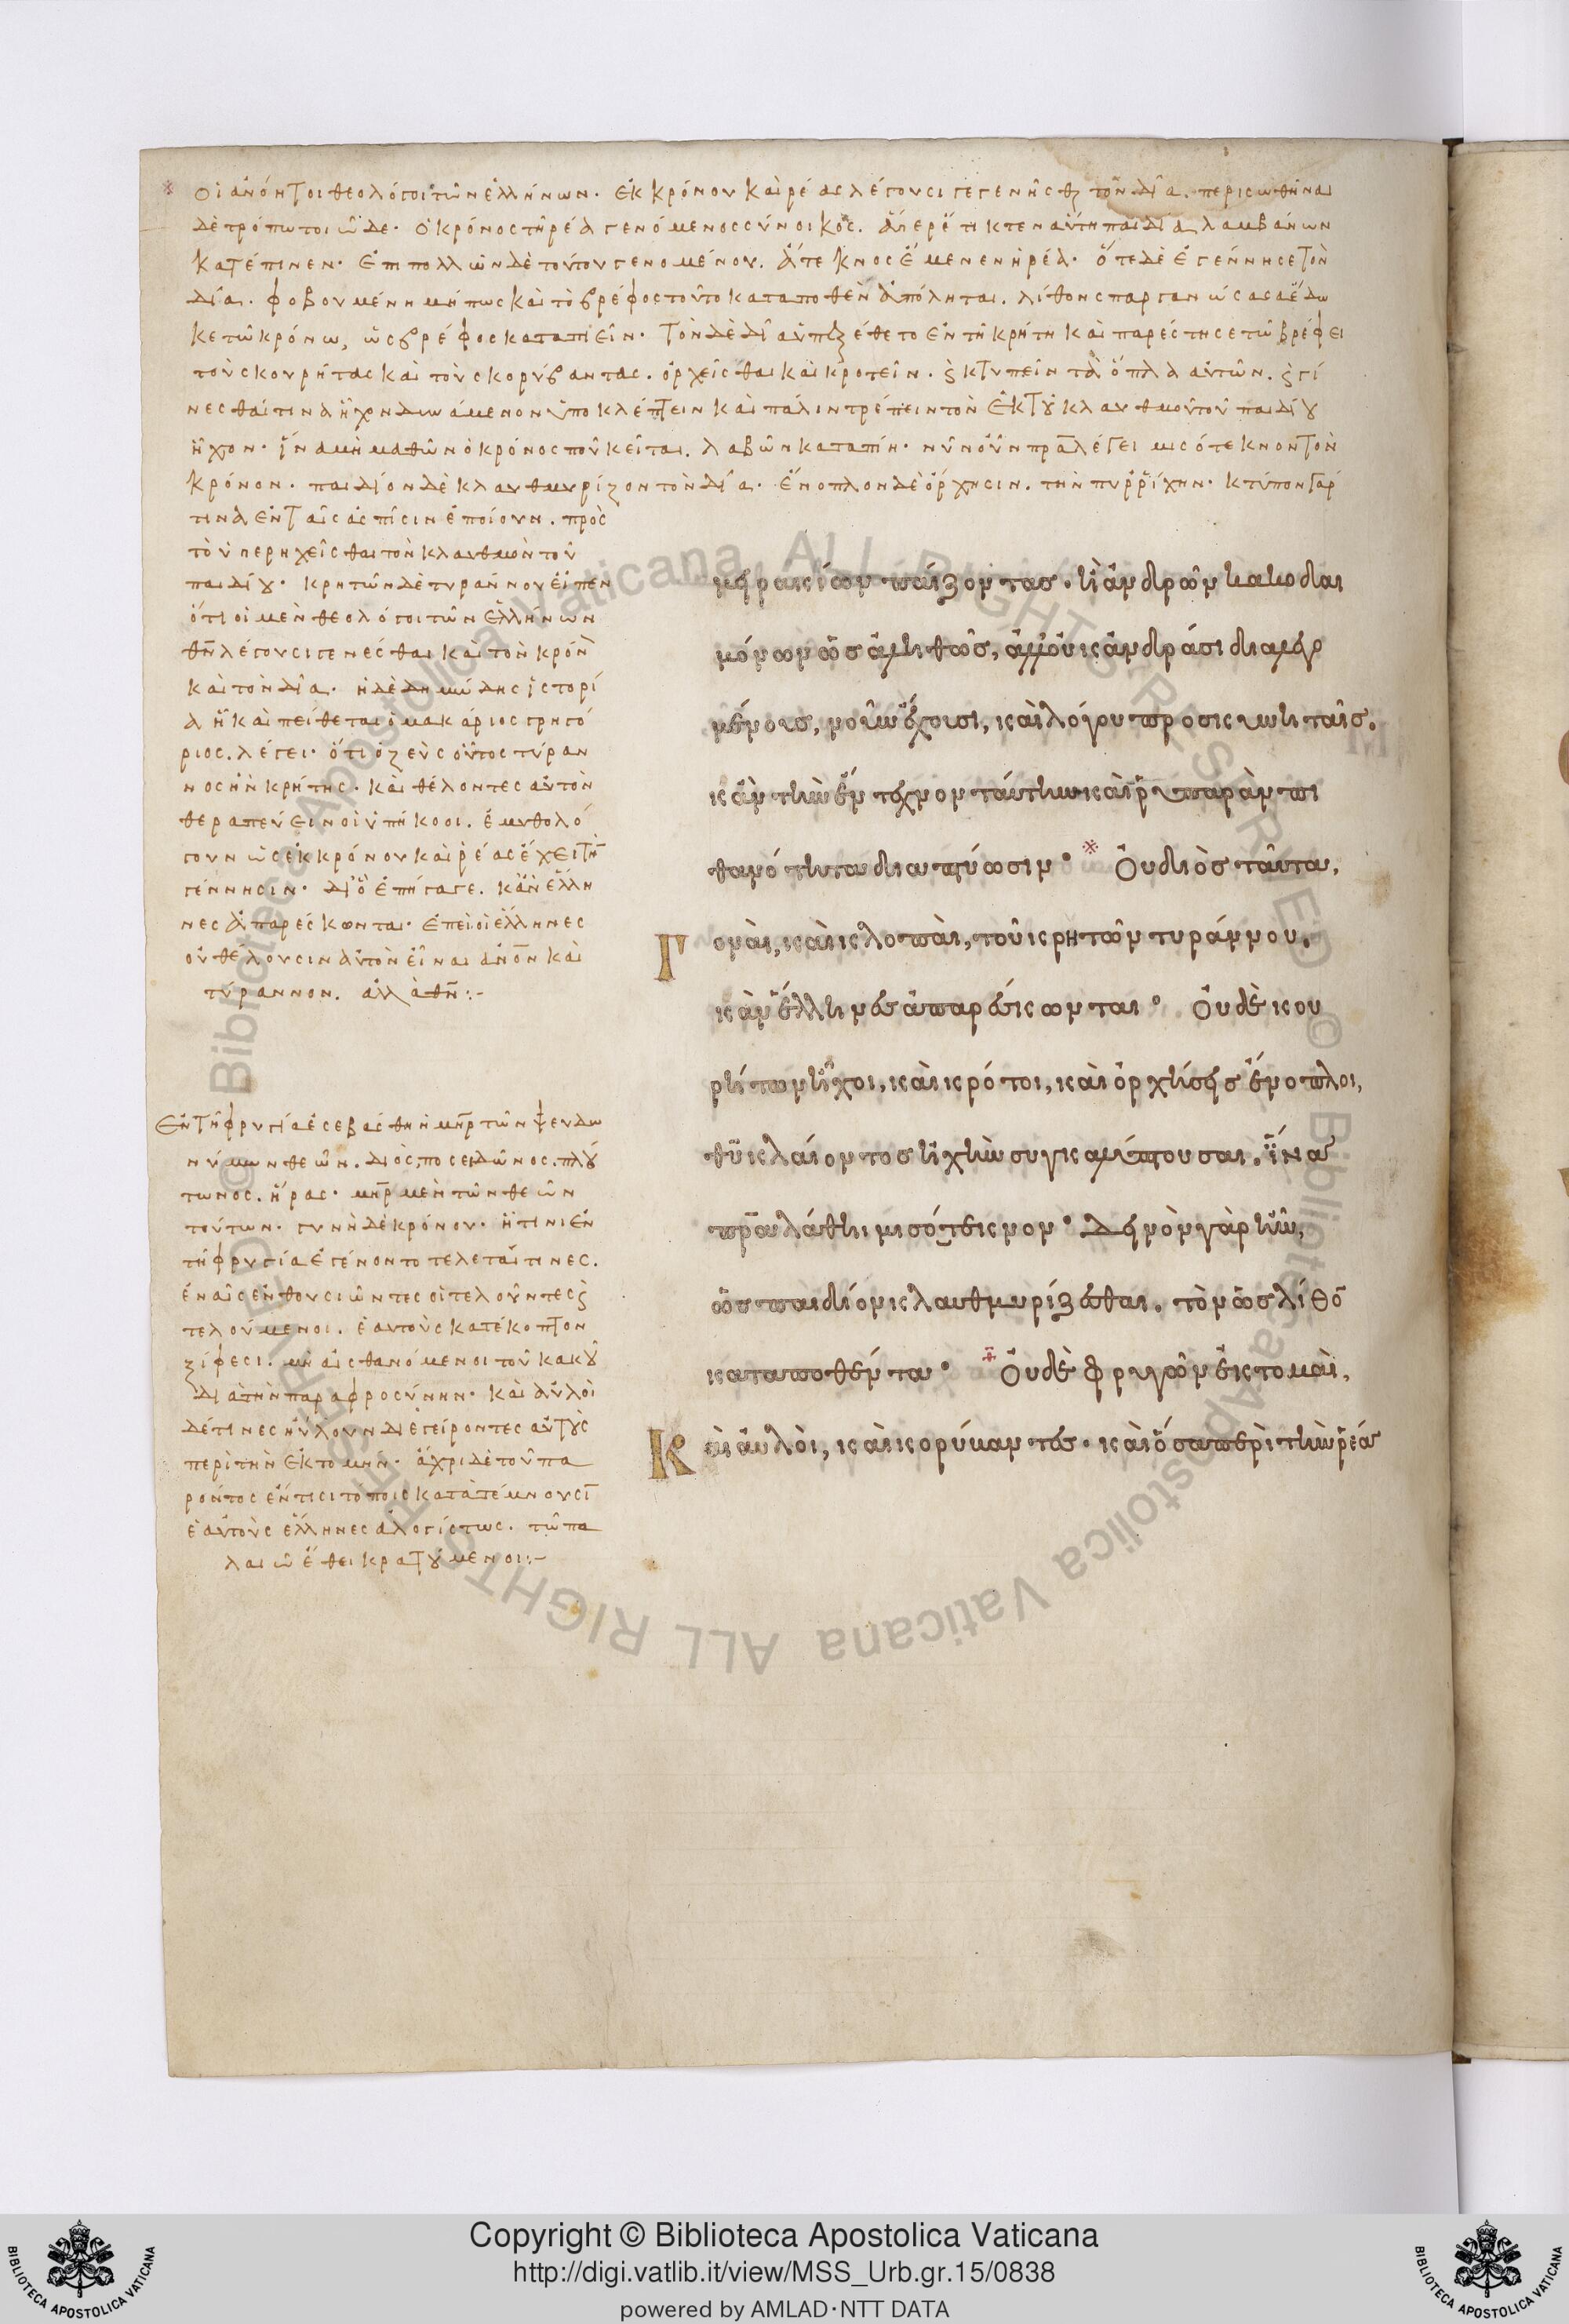 ※ Οἱ ἀνόητοι θεολόγοι τῶν ἑλλήνων· ἐκ κρόνου καὶ ῥέας λέγουσι γεγενῆσθαι τὸν δία. περισωθῆναι
δὲ τρόπω τοιῶδε· ὁ κρόνος τῆ ῥέα γενόμενος σύνοικος. ἅπερ ἔτικτεν αὐτῆ παιδία λαμβάνων
κατέπινεν· ἐπιπολλῶν δὲ τούτου γενομένου. ἄτεκνος ἔμενεν ἡ ῥέα· ὅτε δὲ ἐγέννησε τὸν
δία. φοβουμένη μήπως καὶ τὸ βρέφος τοῦτο καταποθὲν ἀπόληται. λίθον σπαργανώσασα ἔδω
κε τῶ κρόνω, ὡς βρέφος καταπιεῖν· τὸν δὲ δία ἀπέθετο ἐν τῆ κρήτη καὶ παρέστησε τῶ βρέφει
τοὺς κουρῆτας καὶ τοὺς κορύβαντας. ὀρχεῖσθαι καὶ κροτεῖν. ϛ κτυπεῖν τὰ ὅπλα αὐτῶν. ϛ γί
νεσθαί τινα ἦχον δυνάμενον ὑποκλέπτειν καὶ πάλιν τρέπειν τὸν ἐκ τοῦ κλαυθμοῦ τοῦ παιδίου
ἦχον· ἵνα μὴ μαθὼν ὁ κρόνος ποῦ κεῖται. λαβὼν καταπίη· νῦν οὖν πρα λέγει μισότεκνον τὸν
κρόνον· παιδίον δὲ κλαυθμυρίζον τὸν δία· ἔνοπλον δὲ ὄρχησιν. τὴν πυρρίχην· κτύπον γάρ
τινα ἐν ταῖς ἀσπίσιν ἐποίουν. πρὸς
τὸ ὑπερηχεῖσθαι τὸν κλαυθμὸν τοῦ
παιδίου· κρητῶν δὲ τυράννου εἶπεν
ὅτι οἱ μὲν θεολόγοι τῶν ἑλλήνων
θν λέγουσι γενέσθαι καὶ τὸν κρόν
καὶ τὸν δία· ἡ δὲ δημώδης ἱστορί
α ἧ καὶ πείθεται ὁ μακάριος γρηγό
ριος. λέγει· ὅτι ὁ ζεὺς οὗτος τύραν
νος ἦν κρήτης· καὶ θέλοντες αὐτὸν
θεραπεύειν οἱ ὑπήκοοι. ἐμυθολό
γουν ὡς ἐκ κρόνου καὶ ῥέας ἔχει τὴν
γέννησιν· διὸ ἐπήγαγε. κἂν ἕλλη
νες ἀπαρέσκωνται· ἐπεὶ οἱ ἕλληνες
οὐ θέλουσιν αὐτὸν εἶναι ἄνον καὶ
τύραννον. ἀλλὰ θν:-
Ἐν τῆ φρυγία ἐσεβάσθη ἡ μηρ τῶν ψευδω
νύμων θεῶν. διὸς, ποσειδῶνος. πλού
τωνος. ἥρας· μηρ μὲν τῶν θεῶν
τούτων· γυνὴ δὲ κρόνου· ἧτινι ἐν
τῆ φρυγία ἐγένοντο τελεταί τινες.
ἐν αἷς ἐνθουσιῶντες οἱ τελοῦντες ϛ
τελούμενοι. ἑαυτοὺς κατέκοπτον
ξίφεσι. μὴ αἰσθανόμενοι τοῦ κακοῦ
διὰ τὴν παραφροσύνην· καὶ αὐλοὶ
δέ τινες ηὔλουν διεγείροντες αὐτοὺς
περὶ τὴν ἐκτομήν· ἄχρι δὲ τοῦ πα
ρόντος ἔν τισι τόποις κατατέμνουσι
ἑαυτοὺς ἕλληνες ἀλογίστως. τῶ πα
λαιῶ ἔθει κρατούμενοι:-
μειρακίων παίζοντας· ἢ ἀνδρῶν κακοδαι
μόνων ὡς ἀληθῶς, ἀλλ' οὐκ ἀνδράσι διαφέρ
μένοις, νοῦν ἔχουσι, καὶ λόγου προσκυνηταῖς.
κἂν τὴν ἔντεχνον ταύτην καὶ ῥυπαρὰν πι
θανότητα διαπτύωσιν· ※ Οὐ διὸς ταῦτα,
Γοναὶ, καὶ κλοπαὶ, τοῦ κρητῶν τυράννου.
κἂν ἕλληνες ἀπαρέσκωνται· Οὐδὲ κου
ρήτων ἦχοι, καὶ κρότοι, καὶ ὀρχήσεις ἔνοπλοι,
θῦ κλαίοντος ἠχὴν συγκαλύπτουσαι. ἵνα
πρα λάθη μισότεκνον· Δεινὸν γὰρ ἦν,
ὡς παιδίον κλαυθμυρίζεσθαι. τὸν ὡς λίθο
καταποθέντα· Οὐδὲ φρυγῶν ἐκτομαὶ,
Καὶ αὐλοὶ, καὶ κορύβαντες· καὶ ὅσα περὶ τὴν ῥέαν
Copyright © Biblioteca Apostolica Vaticana
http://digi.vatlib.it/view/MSS_Urb.gr.15/0838
powered by AMLAD·NTT DATA
BIBLIOTECA APOSTOLICA VATICANA
BIBLIOTECA APOSTOLICA VATICANA
© Biblioteca Apostolica Vaticana ALL RIGHTS RESERVED